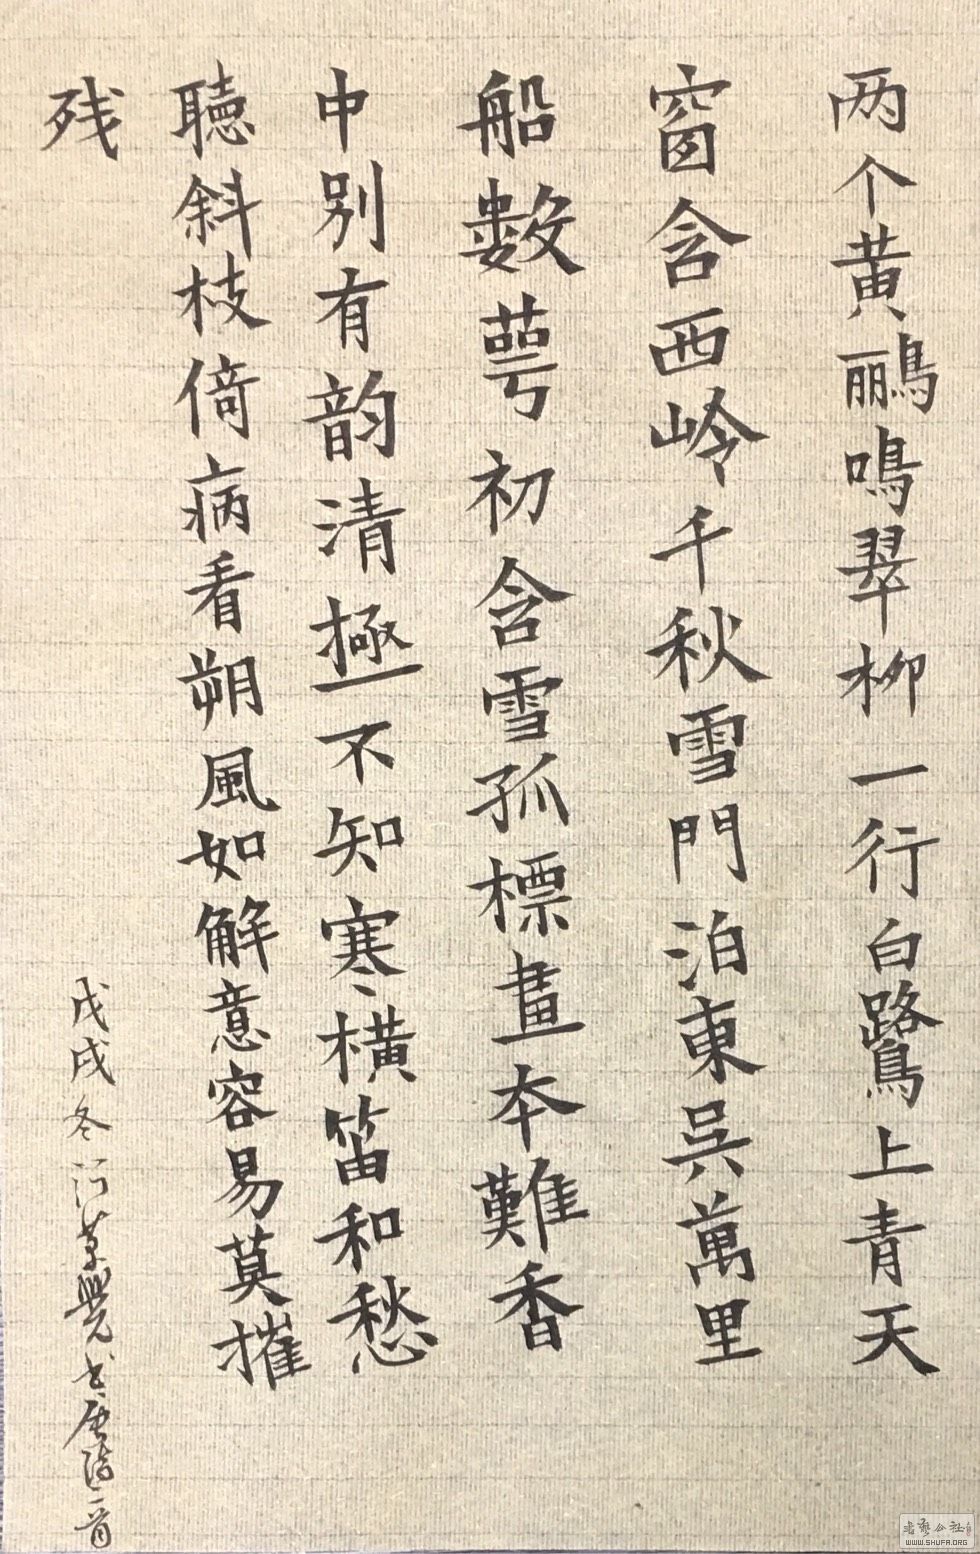 两个黄鹂鳴翠柳一行白鷺上青天
窗含西岭千秋雪門泊東吳萬里
船數萼初含雪孤標畫本難香
中别有韵清極不知寒横笛和愁
聴斜枝倚病看朔風如解意容易莫摧
残
戊戌冬 覺书唐詩二首
WWW.SHUFA.ORG